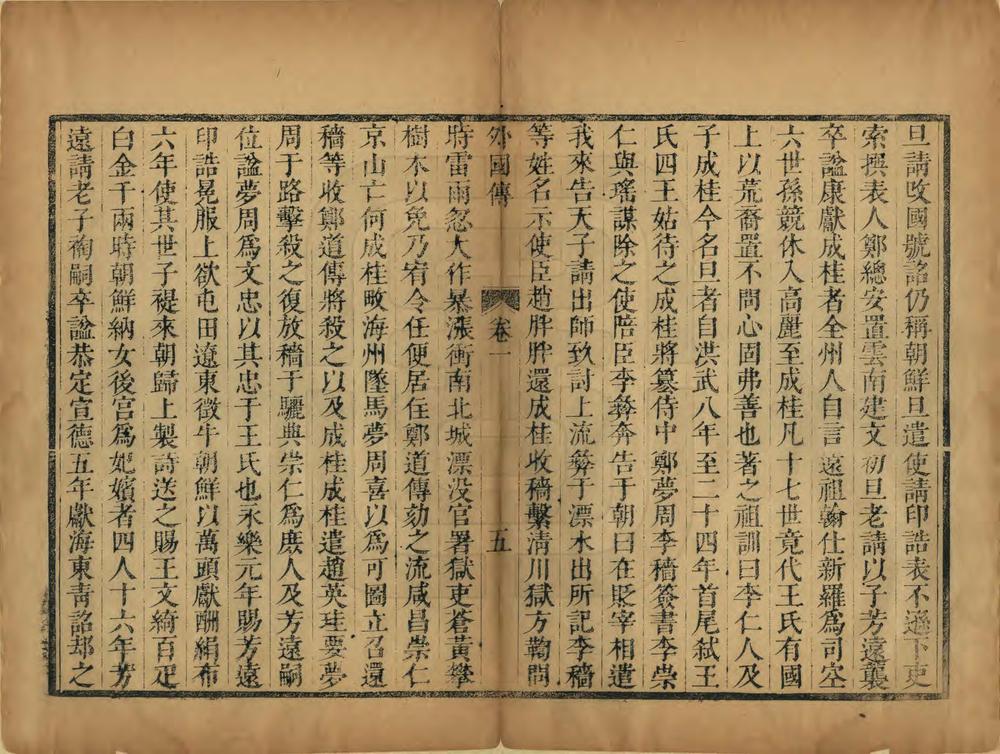 旦請改國號詔仍稱朝鮮旦遣使請印誥表不遜下吏
索撰表人鄭總安置雲南建文初旦老請以子芳遠襲
卒諡康獻成桂者全州人自言遠祖翰仕新羅爲司空
六世孫競休入高麗至成桂凡十七世竟代王氏有國
上以荒裔置不問心固弗善也著之祖訓曰李仁人及
子成桂今名旦者自洪武八年至二十四年首尾弒王
氏四王姑待之成桂將簒侍中鄭夢周李穡簽書李崇
仁與瑤謀除之使陪臣李彜奔告于朝曰在貶宰相遣
我來告天子請出師致討上流彜于漂水出所記李穡
等姓名示使臣趙胖胖還成桂收穡繫清川獄方鞫問
外國傳
卷一
五
時雷雨忽大作暴漲衝南北城漂没官署獄吏蒼黃攀
樹木以免乃宥令任便居住鄭道傳劾之流咸昌崇仁
京山亡何成桂畋海州墜馬夢周喜以爲可圖立召還
穡等收鄭道傳將殺之以及成桂成桂遣趙英珪要夢
周于路擊殺之復放穡于驪興崇仁爲庶人及芳遠嗣
位諡夢周爲文忠以其忠于王氏也永樂元年賜芳遠
印誥晃服上欲屯田遼東徵牛朝鮮以萬頭獻酬絹布
六年使其世子禔來朝歸上製詩送之賜王文綺百疋
白金千兩時朝鮮納女後宮爲妃嬪者四人十六年芳
遠請老子祹嗣卒諡恭定宣德五年獻海東靑詔却之